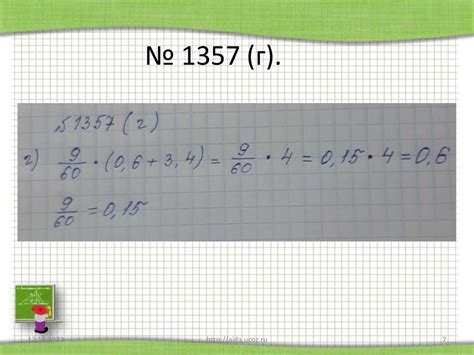 № 1357 (г).
№1357 (г)
г) 9/60 · (0,6 + 3,4) = 9/60 · 4 = 0,15 · 4 = 0,6
9/60 = 0,15
http://aida.ucoz.ru
7